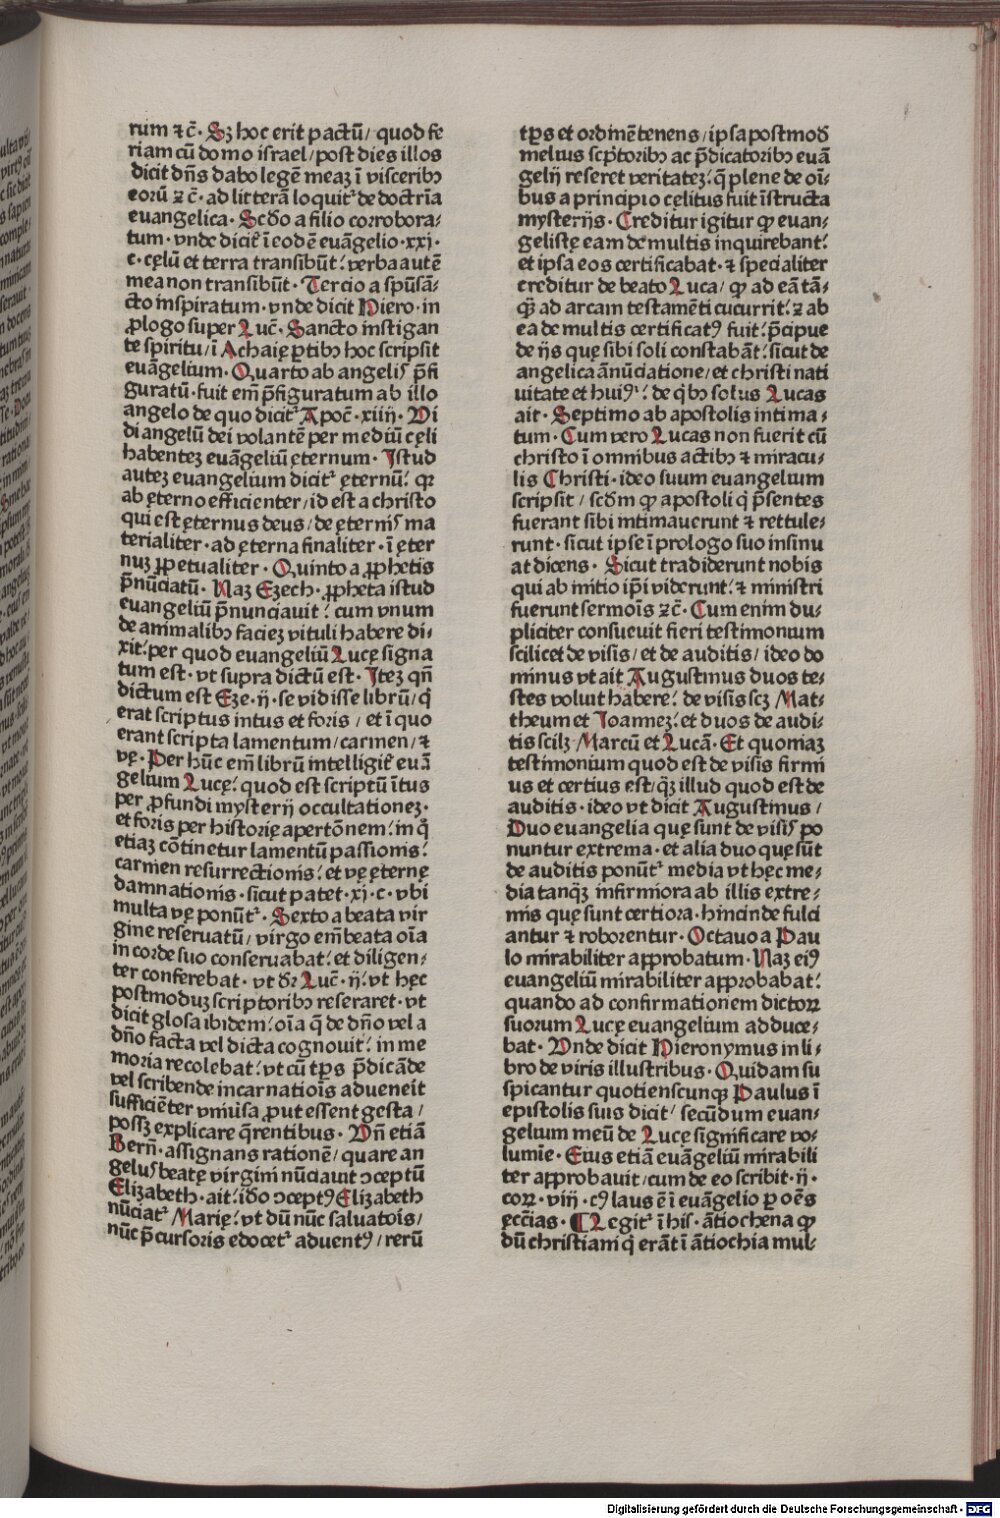 rum ⁊ c̄. Sꝫ hoc erit pactū/ quod fe
riam cū domo israel/ post dies illos
dicit dn̄s dabo legē meaꝫ ī visceribꝰ
eorū ⁊ c̄. ad litterā loquit᷑ de doctrīa
euangelica. Scd̄o a filio corrobora-
tum. vnde dicit᷑ ī eodē euāgelio. xxj.
c. cęlū et terra transibūt: verba autē
mea non transibūt. Tercio a spūsā-
cto inspiratum. vnde dicit Hiero. in
ꝓlogo super Luc̄. Sancto instigan
te spiritu/ ī Achaię ꝑtibꝰ hoc scripsit
euāgelium. Quarto ab angelis p̄fi
guratū. fuit em̄ p̄figuratum ab illo
angelo de quo dicit᷑ Apoc̄. xiiij. Vi
di angelū dei volantē per mediū cęli
habenteꝫ euāgeliū ęternum. Istud
auteꝫ euangelium dicit᷑ ęternū: qꝛ
ab ęterno efficienter/ id est a christo
qui est ęternus deus/ de ęternis ma
terialiter. ad ęterna finaliter. ī ęter
nuꝫ ꝑpetualiter. Quinto a ꝓphetis
p̄nūciatū. Naꝫ Ezech. ꝓpheta istud
euangeliū p̄nunciauit: cum vnum
de animalibꝰ facieꝫ vituli habere di-
xit: per quod euangeliū Lucę signa
tum est. vt supra dictū est. Iteꝫ qn̄
dictum est Eze. ij. se vidisse librū/ q̇
erat scriptus intus et foris/ et ī quo
erant scripta lamentum/ carmen/ ⁊
vę. Per hūc em̄ librū intelligit᷑ euā
gelium Lucę: quod est scriptū ītus
per ꝓfundi mysterij occultationeꝫ.
et foris per historię apertōnem: in q̊
etiaꝫ cōtinetur lamentū passionis:
carmen resurrectionis: et vę ęternę
damnationis. sicut patet. xj. c. vbi
multa vę ponūt᷑. Sexto a beata vir
gine reseruatū/ virgo em̄ beata oīa
in corde suo conseruabat: et diligen-
ter conferebat. vt dr̄ Luc̄. ij: vt hęc
postmoduꝫ scriptoribꝰ reseraret. vt
dicit glosa ibidem: oīa q̄ de dn̄o vel a
dn̄o facta vel dicta cognouit: in me
moria recolebat: vt cū tp̄s p̄dicāde
vel scribende incarnatiois adueneit
sufficiēter vniūsa ꝓut essent gesta/
possꝫ explicare q̄rentibus. Vn̄ etiā
Bern̄. assignans rationē/ quare an
gelus beatę virgini nūciauit ↄceptū
Elizabeth. ait: iđo ↄceptꝰ Elizabeth
nūciat᷑ Marię: vt dū nūc saluatois/
nūc p̄cursoris edocet᷑ aduentꝰ/ rerū
tp̄s et ordinē tenens/ ipsa postmod̄
melius scp̄toribꝰ ac p̄dicatoribꝰ euā
gelij reseret veritateꝫ: q̄ plene de oī-
bus a principio cęlitus fuit īstructa
mysterijs. Creditur igitur ꝙ euan-
gelistę eam de multis inquirebant:
et ipsa eos certificabat. ⁊ specialiter
creditur de beato Luca/ ꝙ ad eā tā-
q̄ ad arcam testamēti cucurrit: ⁊ ab
ea de multis certificatꝰ fuit: p̄cipue
de ijs quę sibi soli constabāt: sicut de
angelica ānūciatione/ et christi nati
uitate et huiꝰ: de q̇bꝰ solus Lucas
ait. Septimo ab apostolis intima-
tum. Cum vero Lucas non fuerit cū
christo ī omnibus actibꝰ ⁊ miracu-
lis Christi. ideo suum euangelium
scripsit/ scd̄m ꝙ apostoli q̇ p̄sentes
fuerant sibi intimauerunt ⁊ rettule-
runt. sicut ipse ī prologo suo insinu
at dicens. Sicut tradiderunt nobis
qui ab initio ip̄i viderunt: ⁊ ministri
fuerunt sermoīs ⁊c̄. Cum enim du-
pliciter consueuit fieri testimonium
scilicet de visis/ et de auditis/ ideo do
minus vt ait Augustinus duos te-
stes voluit habere: de visis scꝫ Mat-
theum et Ioanneꝫ: et duos de audi-
tis scilꝫ Marcū et Lucā. Et quoniaꝫ
testimonium quod est de visis firmi
us et certius est/ q̄ꝫ illud quod est de
auditis. ideo vt dicit Augustinus/
Duo euangelia quę sunt de visis po
nuntur extrema. et alia duo quę sūt
de auditis ponūt᷑ media vt hęc me-
dia tanq̄ꝫ infirmiora ab illis extre-
mis quę sunt certiora. hincinde fulci
antur ⁊ roborentur. Octauo a Pau
lo mirabiliter approbatum. Naꝫ eiꝰ
euangeliū mirabiliter approbabat:
quando ad confirmationem dictoꝝ
suorum Lucę euangelium adduce-
bat. Vnde dicit Hieronymus in li-
bro de viris illustribus. Quidam su
spicantur quotienscunqꝫ Paulus ī
epistolis suis dicit/ secūdum euan-
gelium meū de Lucę significare vo-
lumīe. Eius etiā euāgeliū mirabili
ter approbauit/ cum de eo scribit. ij.
coꝝ. viij. cꝰ laus ē ī euāgelio ꝑ oēs
ęcc̄ias. ¶ Legit᷑ ī his. ātiochena ꝙ
dū christiani q̇ erāt ī ātiochia mul-
Digitalisierung gefördert durch die Deutsche Forschungsgemeinschaft - DFG